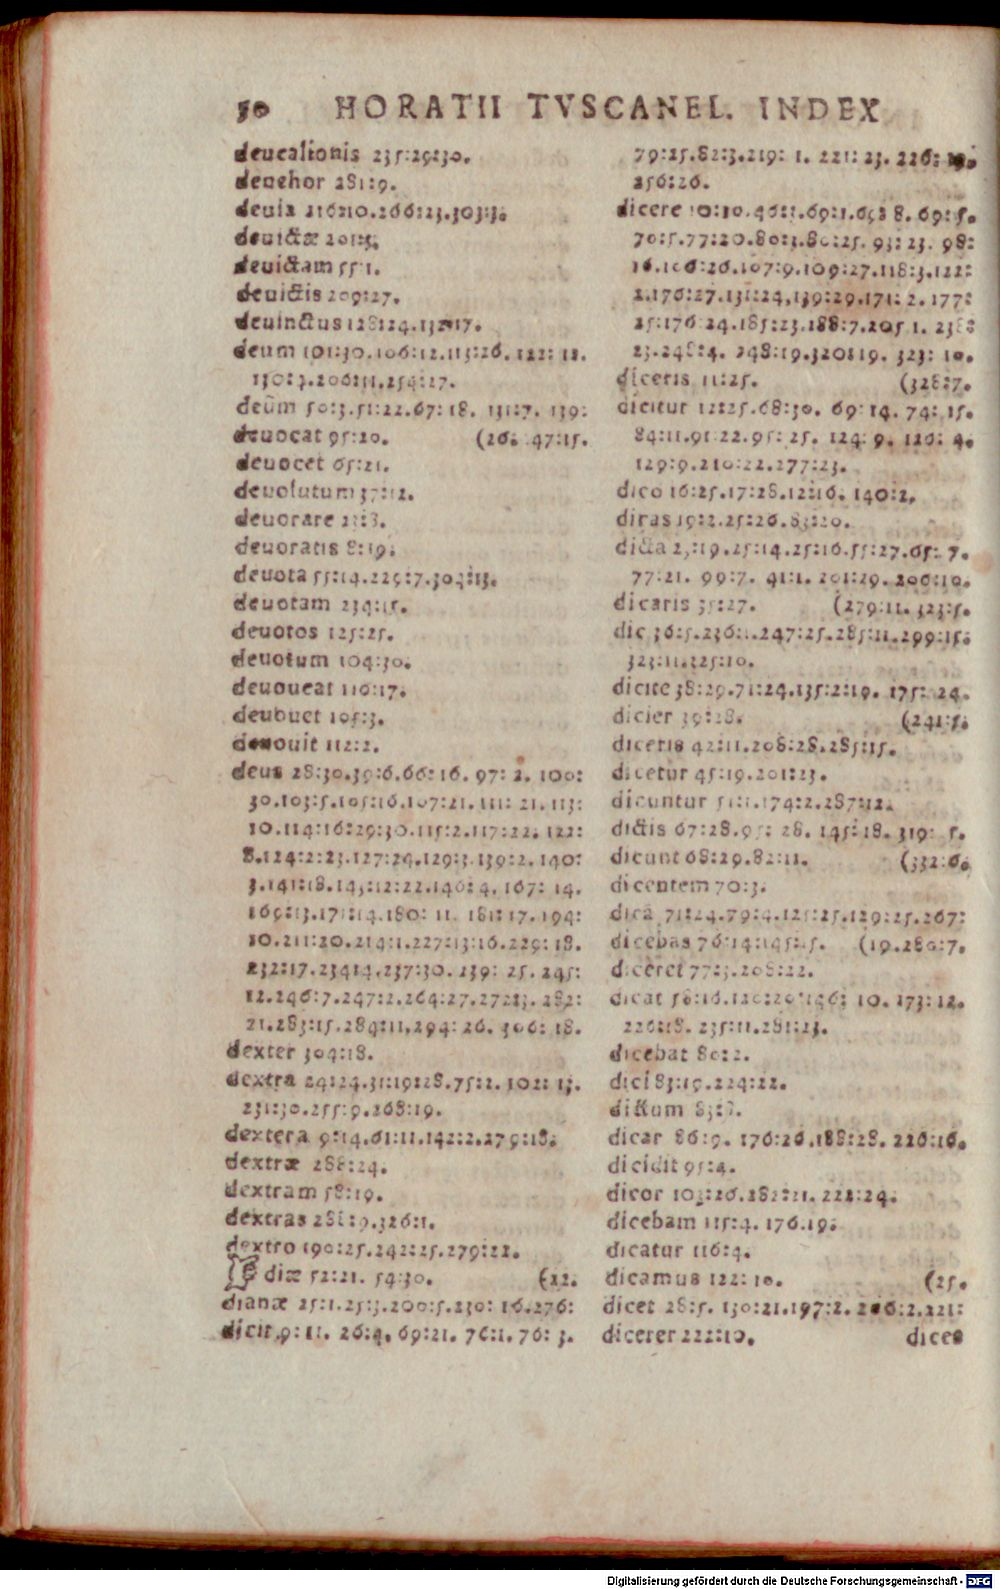 50 HORATII TVSCANEL. INDEX
deucalionis 235:29:30.
deuehor 281:9.
deuia 216:10.266:23.303:3.
deuictæ 201:5.
deuictam 55:1.
deuictis 209:27.
deuinctus 128:24.132:17.
deum 101:30.106:12.113:26. 122: 12.
130:3.206:11.254:27.
deûm 50:3.51:22.67:18. 131:7. 139:
deuocat 95:20. (26. 47:15.
deuocet 65:21.
deuolutum 37:12.
deuorare 21:8.
deuoratis 8:19.
deuota 55:14.229:7.304:13.
deuotam 234:15.
deuotos 125:25.
deuotum 104:30.
deuoueat 110:17.
deubuet 105:3.
deuouit 112:2.
deus 28:30.39:6.66:16. 97: 2. 100:
30.103:5.105:16.107:21.111: 21. 113:
10.114:16:29:30.115:2.117:22. 122:
8.124:2:23.127:24.129:3.139:2. 140:
3.141:18.145:12:22.146:4. 167: 14.
169:13.171:14.180: 11. 181:17.194:
10.211:20.214:1.227:13:16.229: 18.
232:17.23414.237:30. 239: 25. 245:
12.246:7.247:2.264:27.272:3. 282:
21.283:15.284:11.294: 26. 306: 18.
dexter 304:18.
dextra 24:24.31:19:28.75:2. 102: 13.
231:30.255:9.268:19.
dextera 9:14.61:11.142:2.279:18.
dextræ 288:24.
dextram 58:19.
dextras 281:9.326:1.
dextro 190:25.242:25.279:22.
diæ 52:21. 54:30. (12.
dianæ 25:1.25:3.200:5.230: 16.276:
dicit 9: 11. 26:4. 69:21. 76:1. 76: 3.
79:25.82:3.219: 1. 221: 23. 226: 19.
256:26.
dicere 10:10.46:1.69:1.69: 8. 69:5.
70:5.77:20.80:3.80:25. 93: 23. 98:
16.106:26.107:9.109:27.118:3.122:
2.176:27.131:24.139:29.171: 2. 177:
25:176 24.185:23.188:7.205 1. 238:
23.248:4. 248:19.320:19. 323: 10.
diceris 11:25. (328:7.
dicitur 12:25.68:30. 69: 14. 74: 15.
84:11.91:22.95: 25. 124: 9. 126: 4.
129:9.210:22.277:23.
dico 16:25.17:28.12:16. 140:2.
diras 19:2.25:26.83:20.
dicta 23:19.25:14.25:16.55:27.65: 7.
77:21. 99:7. 41:1. 201:29. 206:10.
dicaris 35:27. (279:11. 323:5.
dic 36:5.236:1.247:25.285:11.299:15.
323:11.325:10.
dicite 38:29.71:24.135:2:19. 175: 24.
dicier 39:28. (241:5.
diceris 42:11.208:28.285:15.
dicetur 45:19.201:23.
dicuntur 51:1.174:2.287:12.
dictis 67:28.95: 28. 145:18. 319: 5.
dicunt 68:29.82:11. (332:6.
dicentem 70:3.
dicā 71:24.79:4.125:25.129:25.267:
dicebas 76:14:145:15. (19.280:7.
diceret 77:3.208:22.
dicat 58:16.120:20:146: 10. 173:12.
226:18. 235:11.281:23.
dicebat 80:2.
dici 83:19.224:22.
dictum 83:8.
dicar 86:9. 176:26.188:28. 226:16.
dicidit 95:4.
dicor 103:26.282:21. 222:24.
dicebam 115:4. 176.19.
dicatur 116:4.
dicamus 122: 10. (25.
dicet 28:5. 130:21.197:2. 206:2.221:
dicerer 222:10. dices
Digitalisierung gefördert durch die Deutsche Forschungsgemeinschaft - DFG